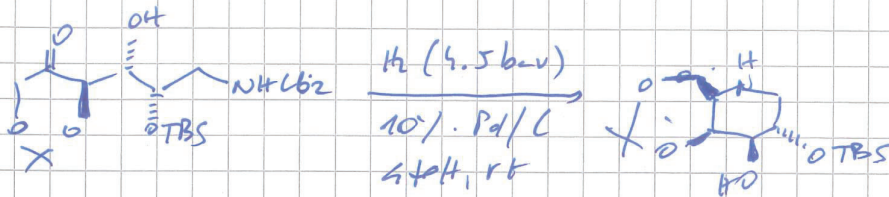 OH
O
NHCbz
O
O
OTBS
H₂ (4.5 bar)
10% Pd/C
EtOH, rt
H
N
O
O
OTBS
HO